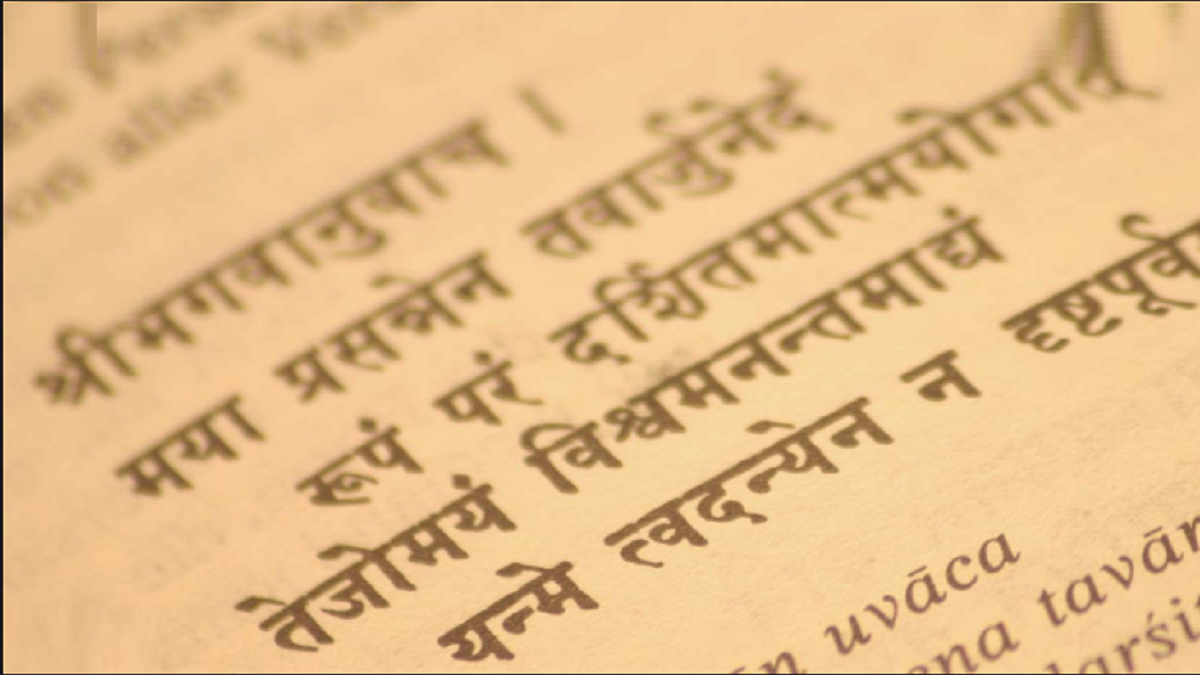 on aller
श्रीभगवानुवाच ।
मया प्रसन्नेन तवार्जुनेदं
रूपं परं दर्शितमात्मयोगात्
तेजोमयं विश्वमनन्तमाद्यं
यन्मे त्वदन्येन न दृष्टपूर्व
uvāca
tavār